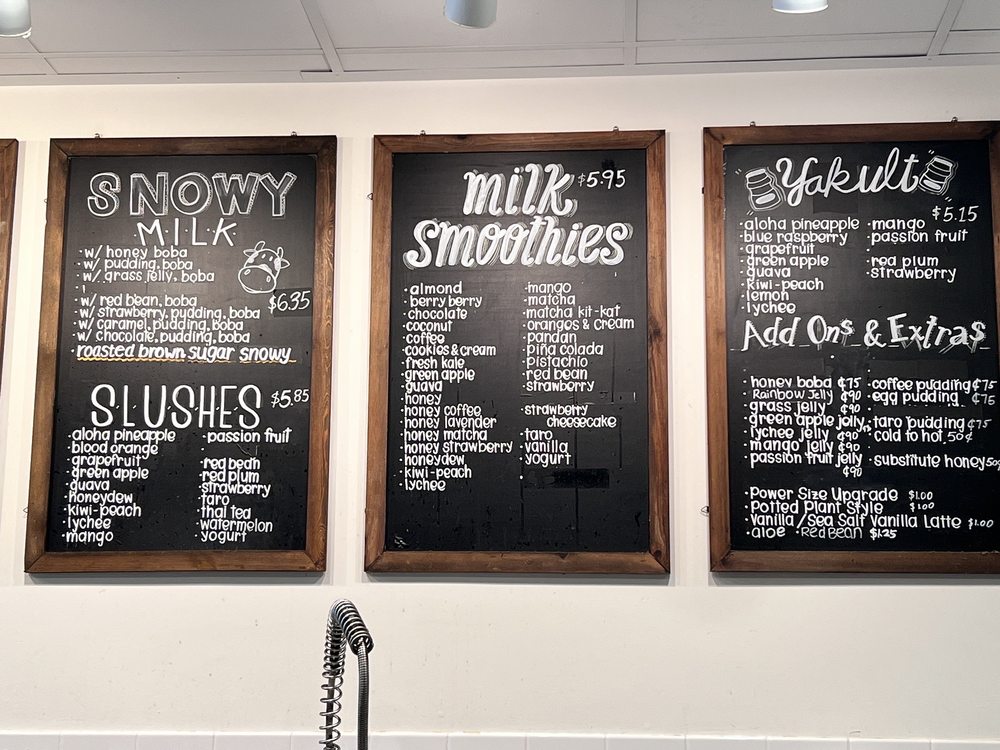 SNOWY
MILK
· w/ honey boba
· w/ pudding, boba
· w/ grass jelly, boba
· w/ red bean, boba
$6.35
· w/ strawberry, pudding, boba
· w/ caramel, pudding, boba
· w/ chocolate, pudding, boba
· roasted brown sugar snowy
SLUSHES $5.85
· aloha pineapple
· blood orange
· grapefruit
· green apple
· guava
· honeydew
· kiwi-peach
· lychee
· mango
· passion fruit
· red bean
· red plum
· strawberry
· taro
· thai tea
· watermelon
· yogurt
milk $5.95
smoothies
· almond
· berry berry
· chocolate
· coconut
· coffee
· cookies & cream
· fresh kale
· green apple
· guava
· honey
· honey coffee
· honey lavender
· honey matcha
· honey strawberry
· honeydew
· kiwi-peach
· lychee
· mango
· matcha
· matcha kit-kat
· oranges & cream
· pandan
· piña colada
· pistachio
· red bean
· strawberry
· strawberry
cheesecake
· taro
· vanilla
· yogurt
Yakult
$5.15
· aloha pineapple
· blue raspberry
· grapefruit
· green apple
· guava
· kiwi-peach
· lemon
· lychee
· mango
· passion fruit
· red plum
· strawberry
Add Ons & Extras
· honey boba ¢75
· Rainbow Jelly ¢90
· grass jelly ¢90
· green apple jelly
· lychee jelly ¢90
· mango jelly ¢90
· passion fruit jelly
¢90
· coffee pudding ¢75
· egg pudding ¢75
· taro pudding ¢75
· cold to hot 50¢
· substitute honey 50
· Power Size Upgrade $1.00
· Potted Plant Style $1.00
· Vanilla / Sea Salt Vanilla Latte $1.00
· aloe · Red Bean $1.25